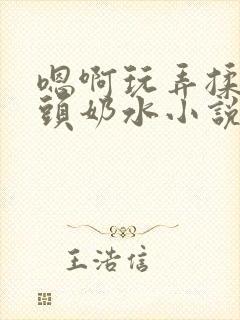 嗯啊玩弄揉
頭奶水小說
王浩信